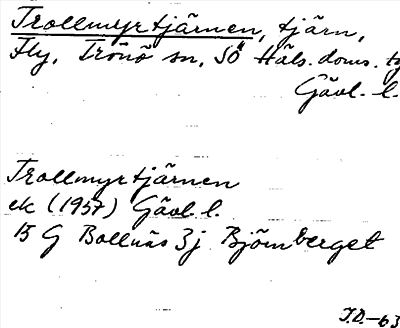 Trollmyrtjärnen, tjärn,
Fly, Trönö sn, SÖ Häls. doms. tg
Gävl. l.
Trollmyrtjärnen
ek (1957) Gävl. l.
15 G Bollnäs 3j Björnberget
J.D.-63